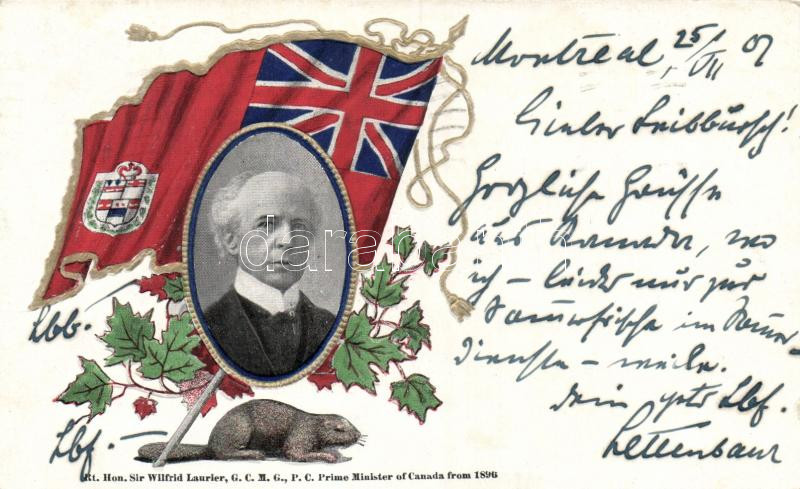 Montreal, 25/VII 07
Lieber Leibbursch!
Herzliche Grüsse
aus Kanada, wo
ich – leider nur zur
Sommerfrische im
– weile.
Dein Lbf.
Lettenbaur
Lbb.
Lbf. –
darabanth
Rt. Hon. Sir Wilfrid Laurier, G. C. M. G., P. C. Prime Minister of Canada from 1896